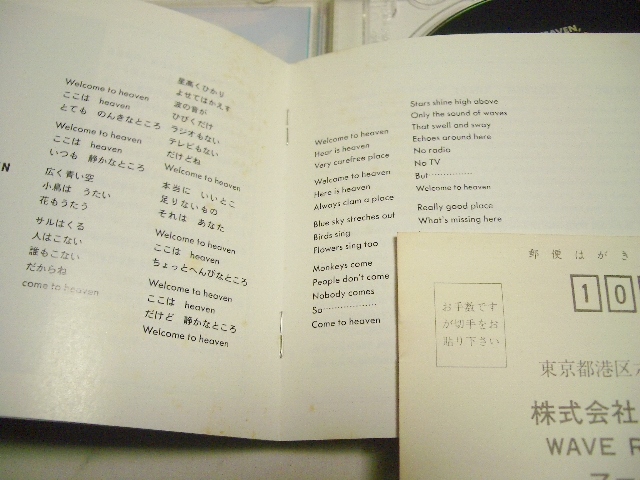 EN
Welcome to heaven
ここは heaven
とても のんきなところ
Welcome to heaven
ここは heaven
いつも 静かなところ
広く青い空
小鳥は うたい
花もうたう
サルはくる
人はこない
誰もこない
だからね
come to heaven
星高くひかり
よせてはかえす
波の音が
ひびくだけ
ラジオもない
テレビもない
だけどね
Welcome to heaven
本当に いいとこ
足りないもの
それは あなた
Welcome to heaven
ここは heaven
ちょっとへんぴなところ
Welcome to heaven
ここは heaven
だけど 静かなところ
Welcome to heaven
Welcome to heaven
Hear is heaven
Very carefree place
Welcome to heaven
Here is heaven
Always clam a place
Blue sky streches out
Birds sing
Flowers sing too
Monkeys come
People don't come
Nobody comes
So
Come to heaven
Stars shine high above
Only the sound of waves
That swell and sway
Echoes around here
No radio
No TV
But
Welcome to heaven
Really good place
What's missing here
HEAVEN,
郵便はがき
10
お手数です
が切手をお
貼り下さい
東京都港区
株式会社
WAVE R